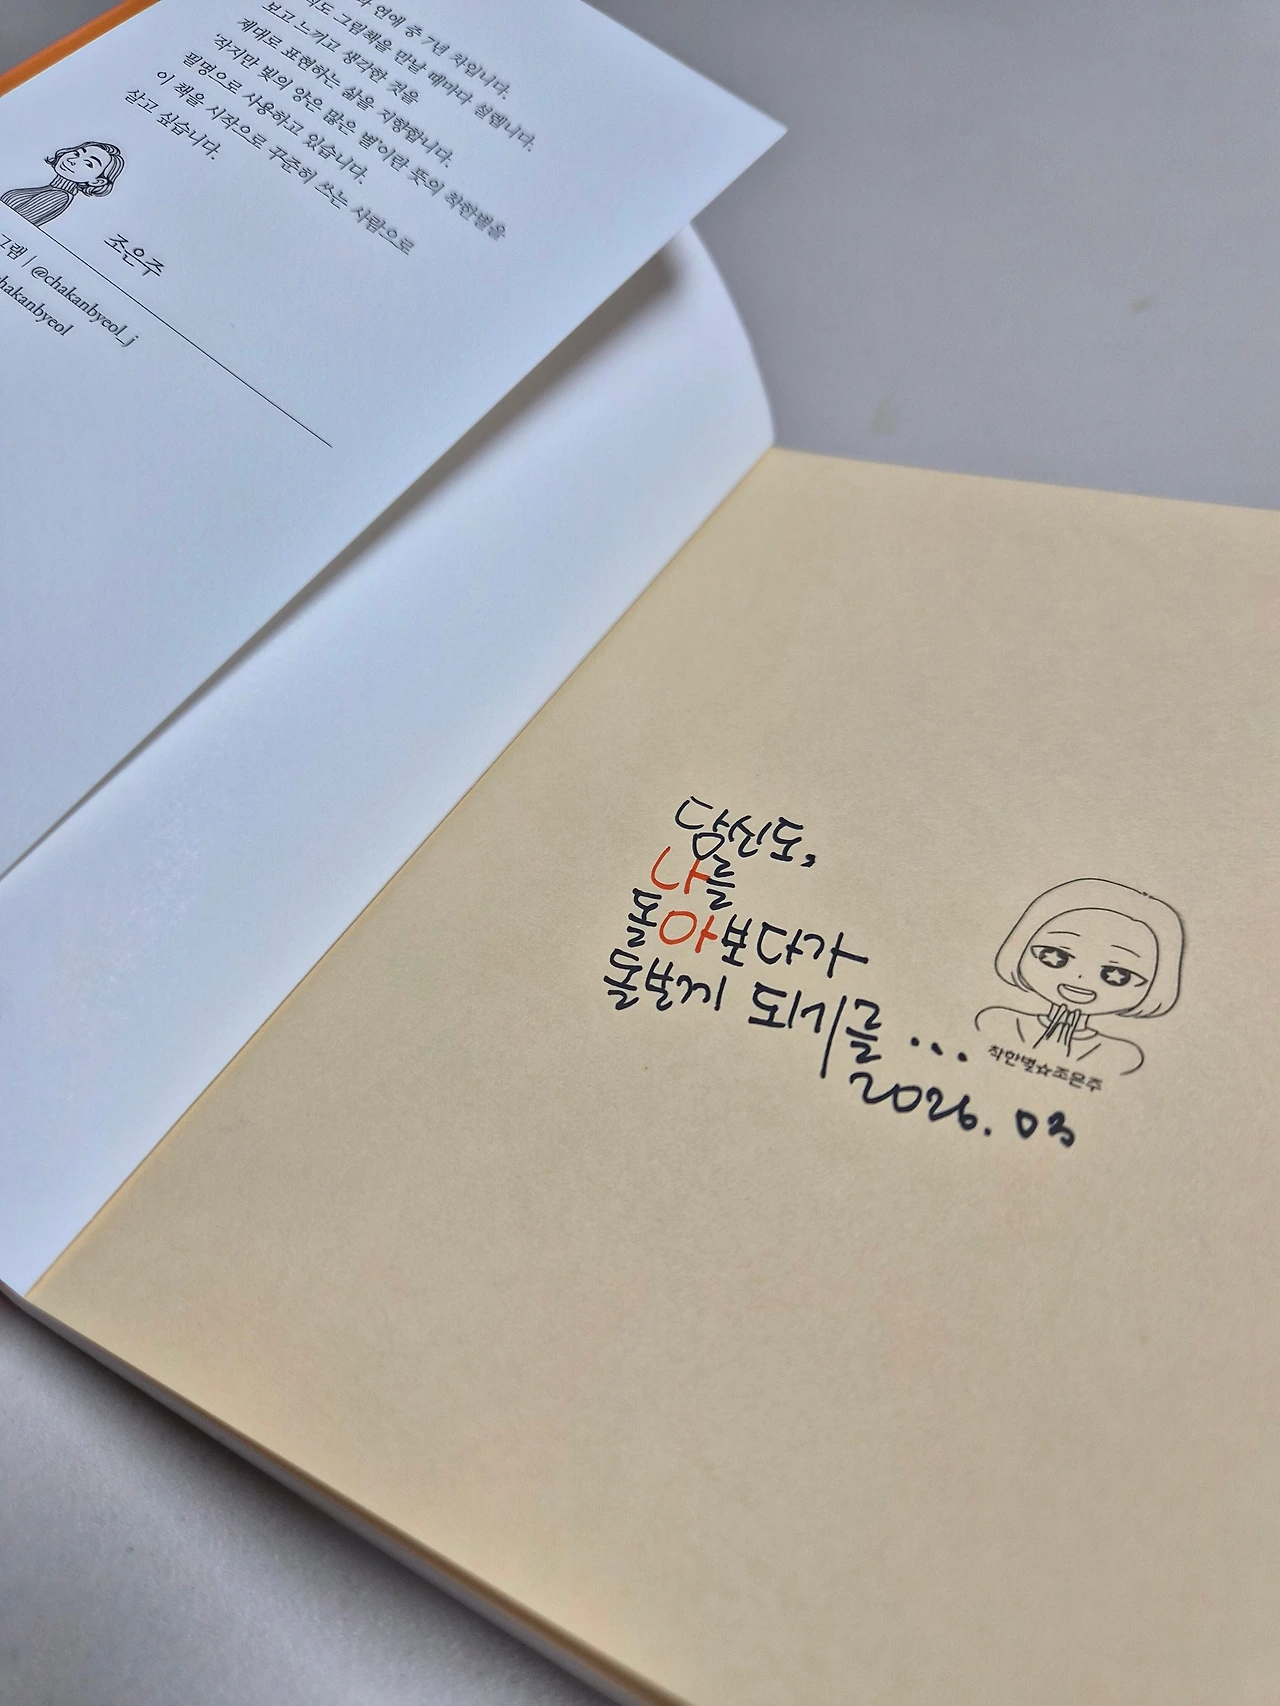 연애 중 7년 차입니다.
그림책을 만날 때마다 설렙니다.
보고 느끼고 생각한 것을
제대로 표현하는 삶을 지향합니다.
'작지만 빛의 양은 많은 별'이란 뜻의 착한별을
필명으로 사용하고 있습니다.
이 책을 시작으로 꾸준히 쓰는 사람으로
살고 싶습니다.
조은주
그램 | @chakanbyeol_j
hakanbyeol
당신도,
나를
돌아보다가
돌보게 되기를...
착한별☆조은주
2026. 03